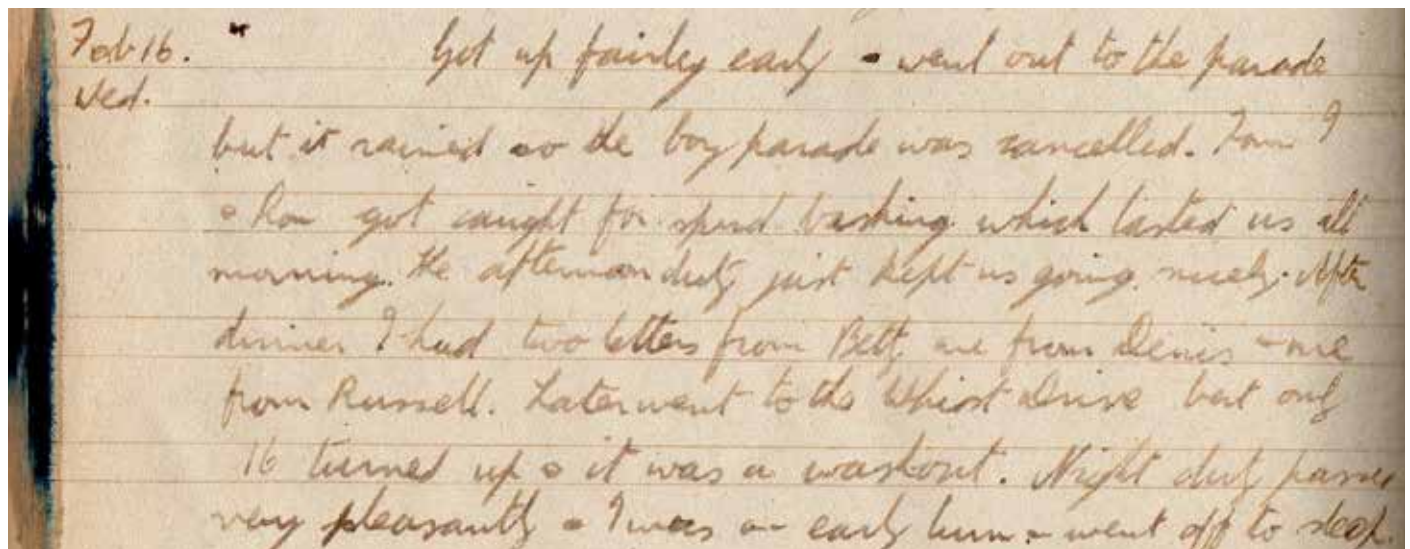 Feb 16. Got up fairley early & went out to the parade
Wed.
but it rained so the boy parade was cancelled. Tom &
Ron got caught for spud bashing which lasted us all
morning. The afternoon duty just kept us going nicely. After
dinner I had two letters from Bett, one from Denis & one
from Russell. Later went to the Whist Drive but only
16 turned up & it was a washout. Night duty passed
very pleasantly & I was on early turn & went off to sleep.